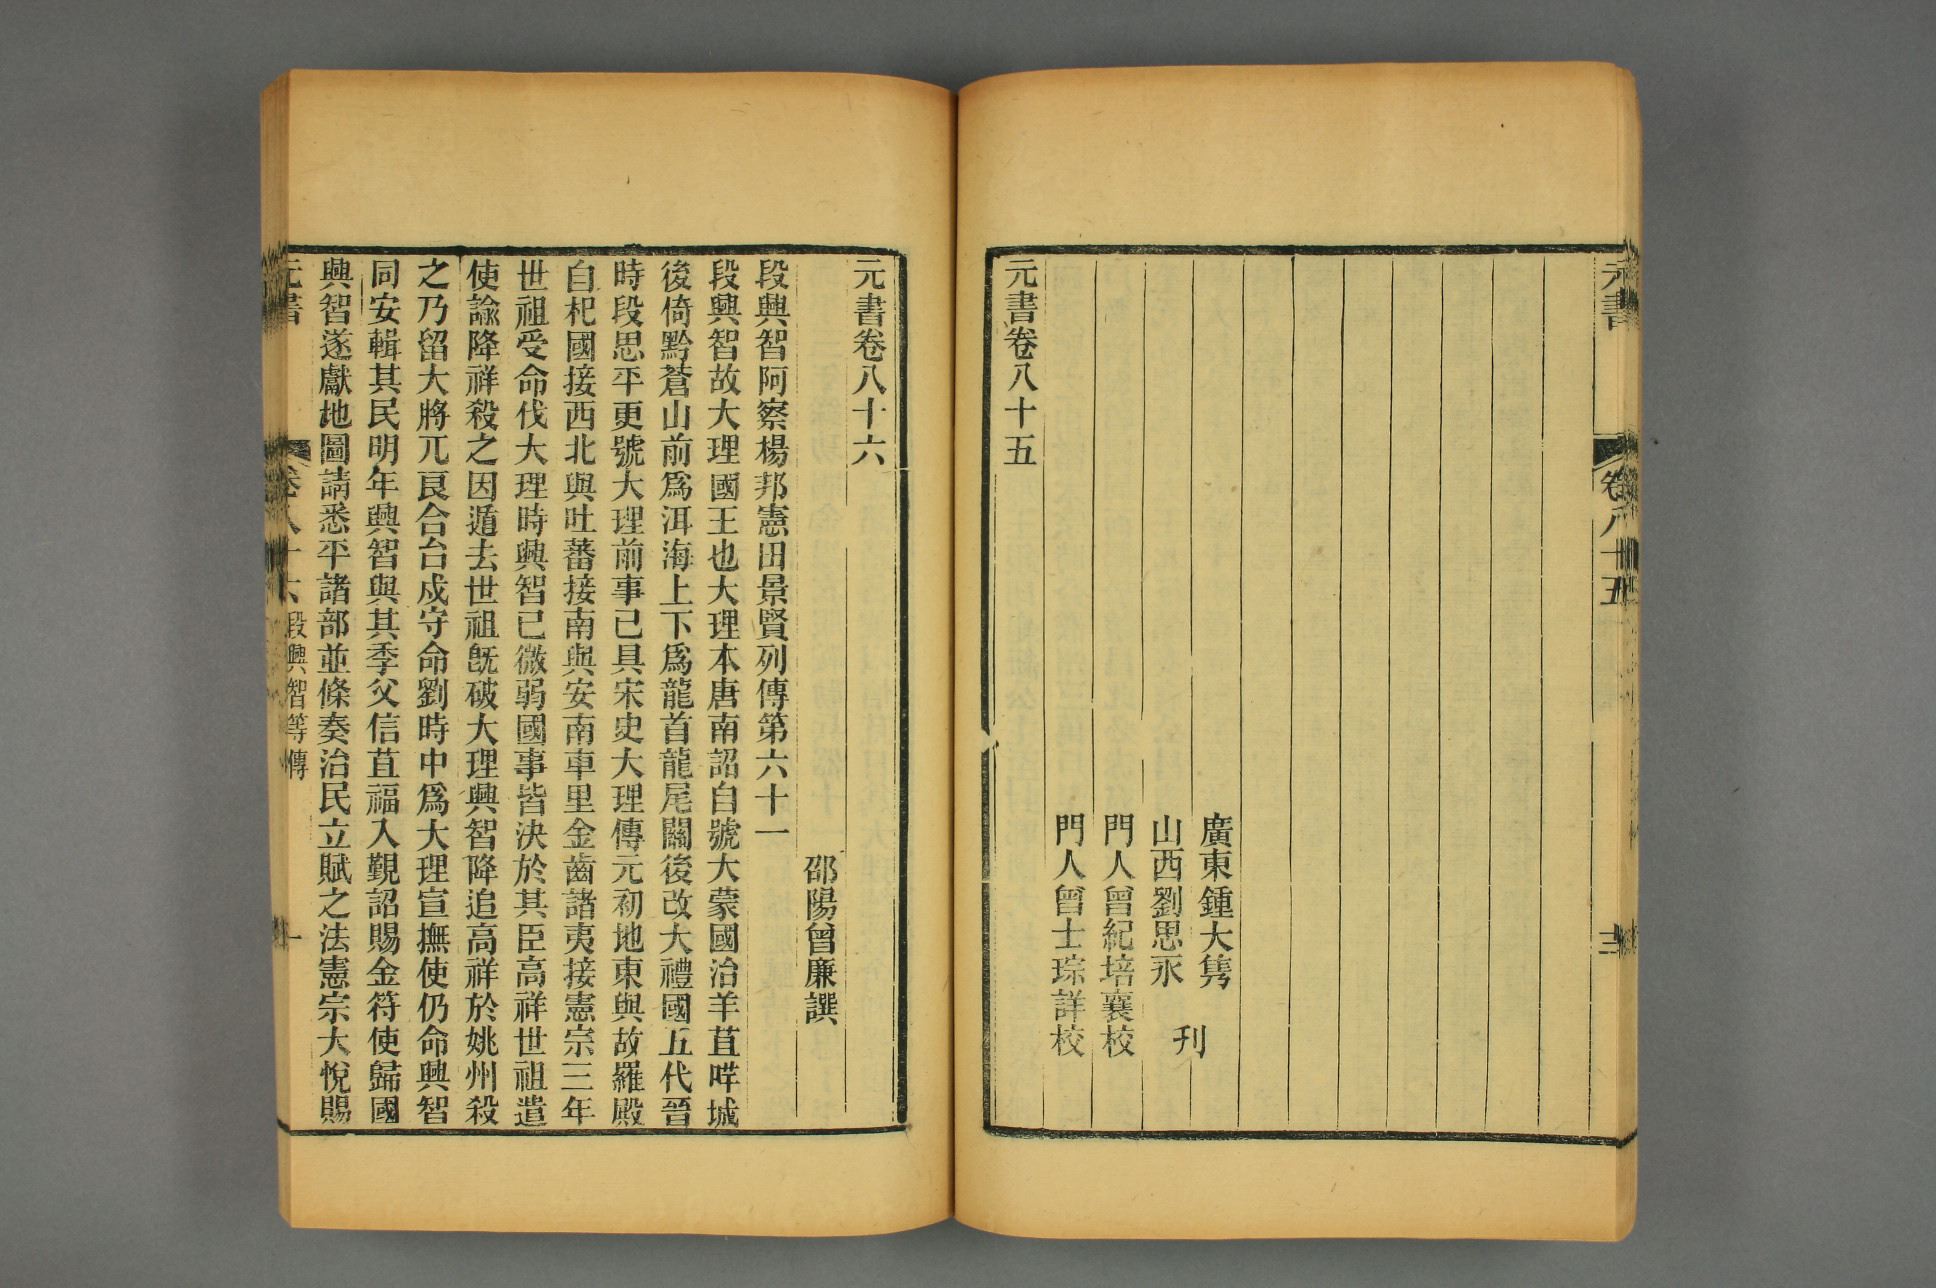 元書
卷八十五
廣東鍾大㑺
山西劉思永
刊
門人曾紀培襄校
門人曾士琮詳校
元書卷八十五
元書卷八十六
邵陽曾廉譔
段興智阿察楊邦憲田景賢列傳第六十一
段興智故大理國王也大理本唐南詔自號大蒙國治羊苴咩城
後倚黔蒼山前爲洱海上下爲龍首龍尾關後改大禮國五代晉
時段思平更號大理前事已具宋史大理傳元初地東與故羅殿
自杞國接西北與吐蕃接南與安南車里金齒諸夷接憲宗三年
世祖受命伐大理時興智已微弱國事皆決於其臣高祥世祖遣
使諭降祥殺之因遁去世祖旣破大理興智降追高祥於姚州殺
之乃留大將兀良合台戍守命劉時中爲大理宣撫使仍命興智
同安輯其民明年興智與其季父信苴福入覲詔賜金符使歸國
興智遂獻地圖請悉平諸部並條奏治民立賦之法憲宗大悅賜
元書
卷八十六
段興智等傳
一